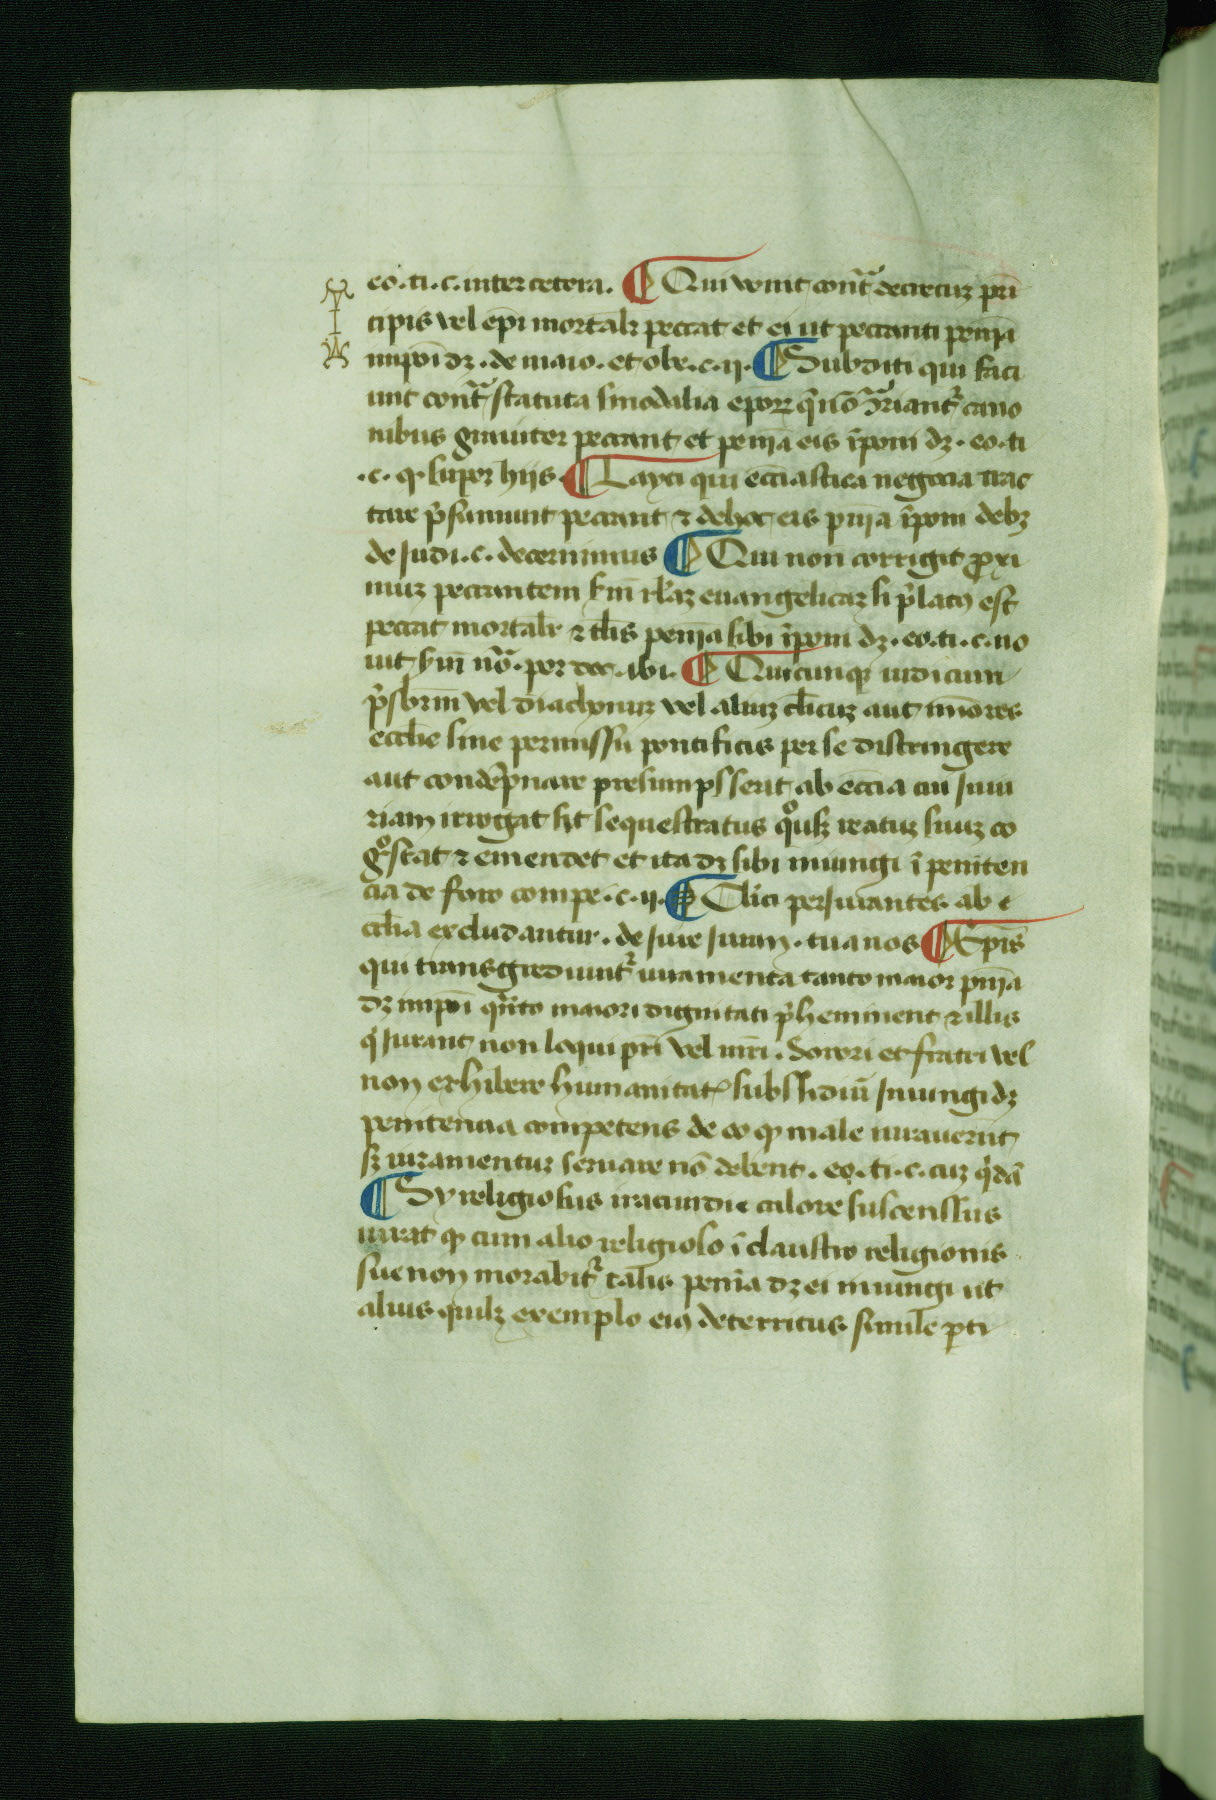 eo.ti.c.inter cetera. ¶ Qui venit cont̃ᵃ decretuꝫ pri
cipis vel ep̄i mortalꝛ peccat et ei ut peccanti penĩa
impoĩ dꝫ .de maio. et obe.c.ii. ¶ Subditi qui faci
unt cont̃ᵃ statuta sinodalia epoꝝ cano
nibus grauiter peccant et penĩa eis ĩponi dꝫ. eo.ti
.c. ꝙ super hijs. ¶ Layci qui ecc̄iastica negocia trac
tare p̃sumunt peccant ⁊ de hoc eis pnĩa ĩponi debꝫ
de Judi.c. decernimus ¶ Qui non corrigit ꝓxi
muꝫ peccantem sm̄ euangelicaꝫ si p̃latꝰ est
peccat mortalr ⁊ tl̄is penĩa sibi ĩponi dꝫ. eo.ti.c.no
uit sm̄ .ibi. ¶ Quicunqꝫ iudicum
p̃sbrm̄ vel diachonuꝫ vel aliuꝫ cl̄icuꝫ aut mĩores
eccl̄ie sine permissũ pontificis per se distringere
aut condẽpnare presumpsserit ab ecc̄ia cui Iniu
riam irrogat sit sequestratus reatuꝫ suuꝫ co
gͦscat ⁊ emendet et ita dꝫ sibi iniungi ĩ peniten
cia de foro compe.c.ii. ¶ Cl̄ici perJurantes ab e
ccl̄ia excludantur. de Jure Juran. tua nos ¶ Ep̄is
qui transgrediunt̃ iuramenta tanto maior pnĩa
dꝫ impoĩ qñto maiori dignitati p̃heminent ⁊ illis
q̇ Jurant non loqui pr̄i vel mr̄i. Sorori et fratri vel
non exhibere humanitat̄ subsidiũ Iniungi dꝫ
penitencia competens de eo ꝙ male iurauerũt
sꝫ iuramentuꝫ seruare nõ debent. eo.ti.c. cuꝫ q̇dã
¶ Sy religiosus iracundie calore suscenssus
iurat ꝙ cum alio religioso ĩ claustro religionis
sue non morabit̃ talis penĩa dꝫ ei iniungi ut
alius quilꝫ exemplo eiꝰ deterritus simile ꝑti